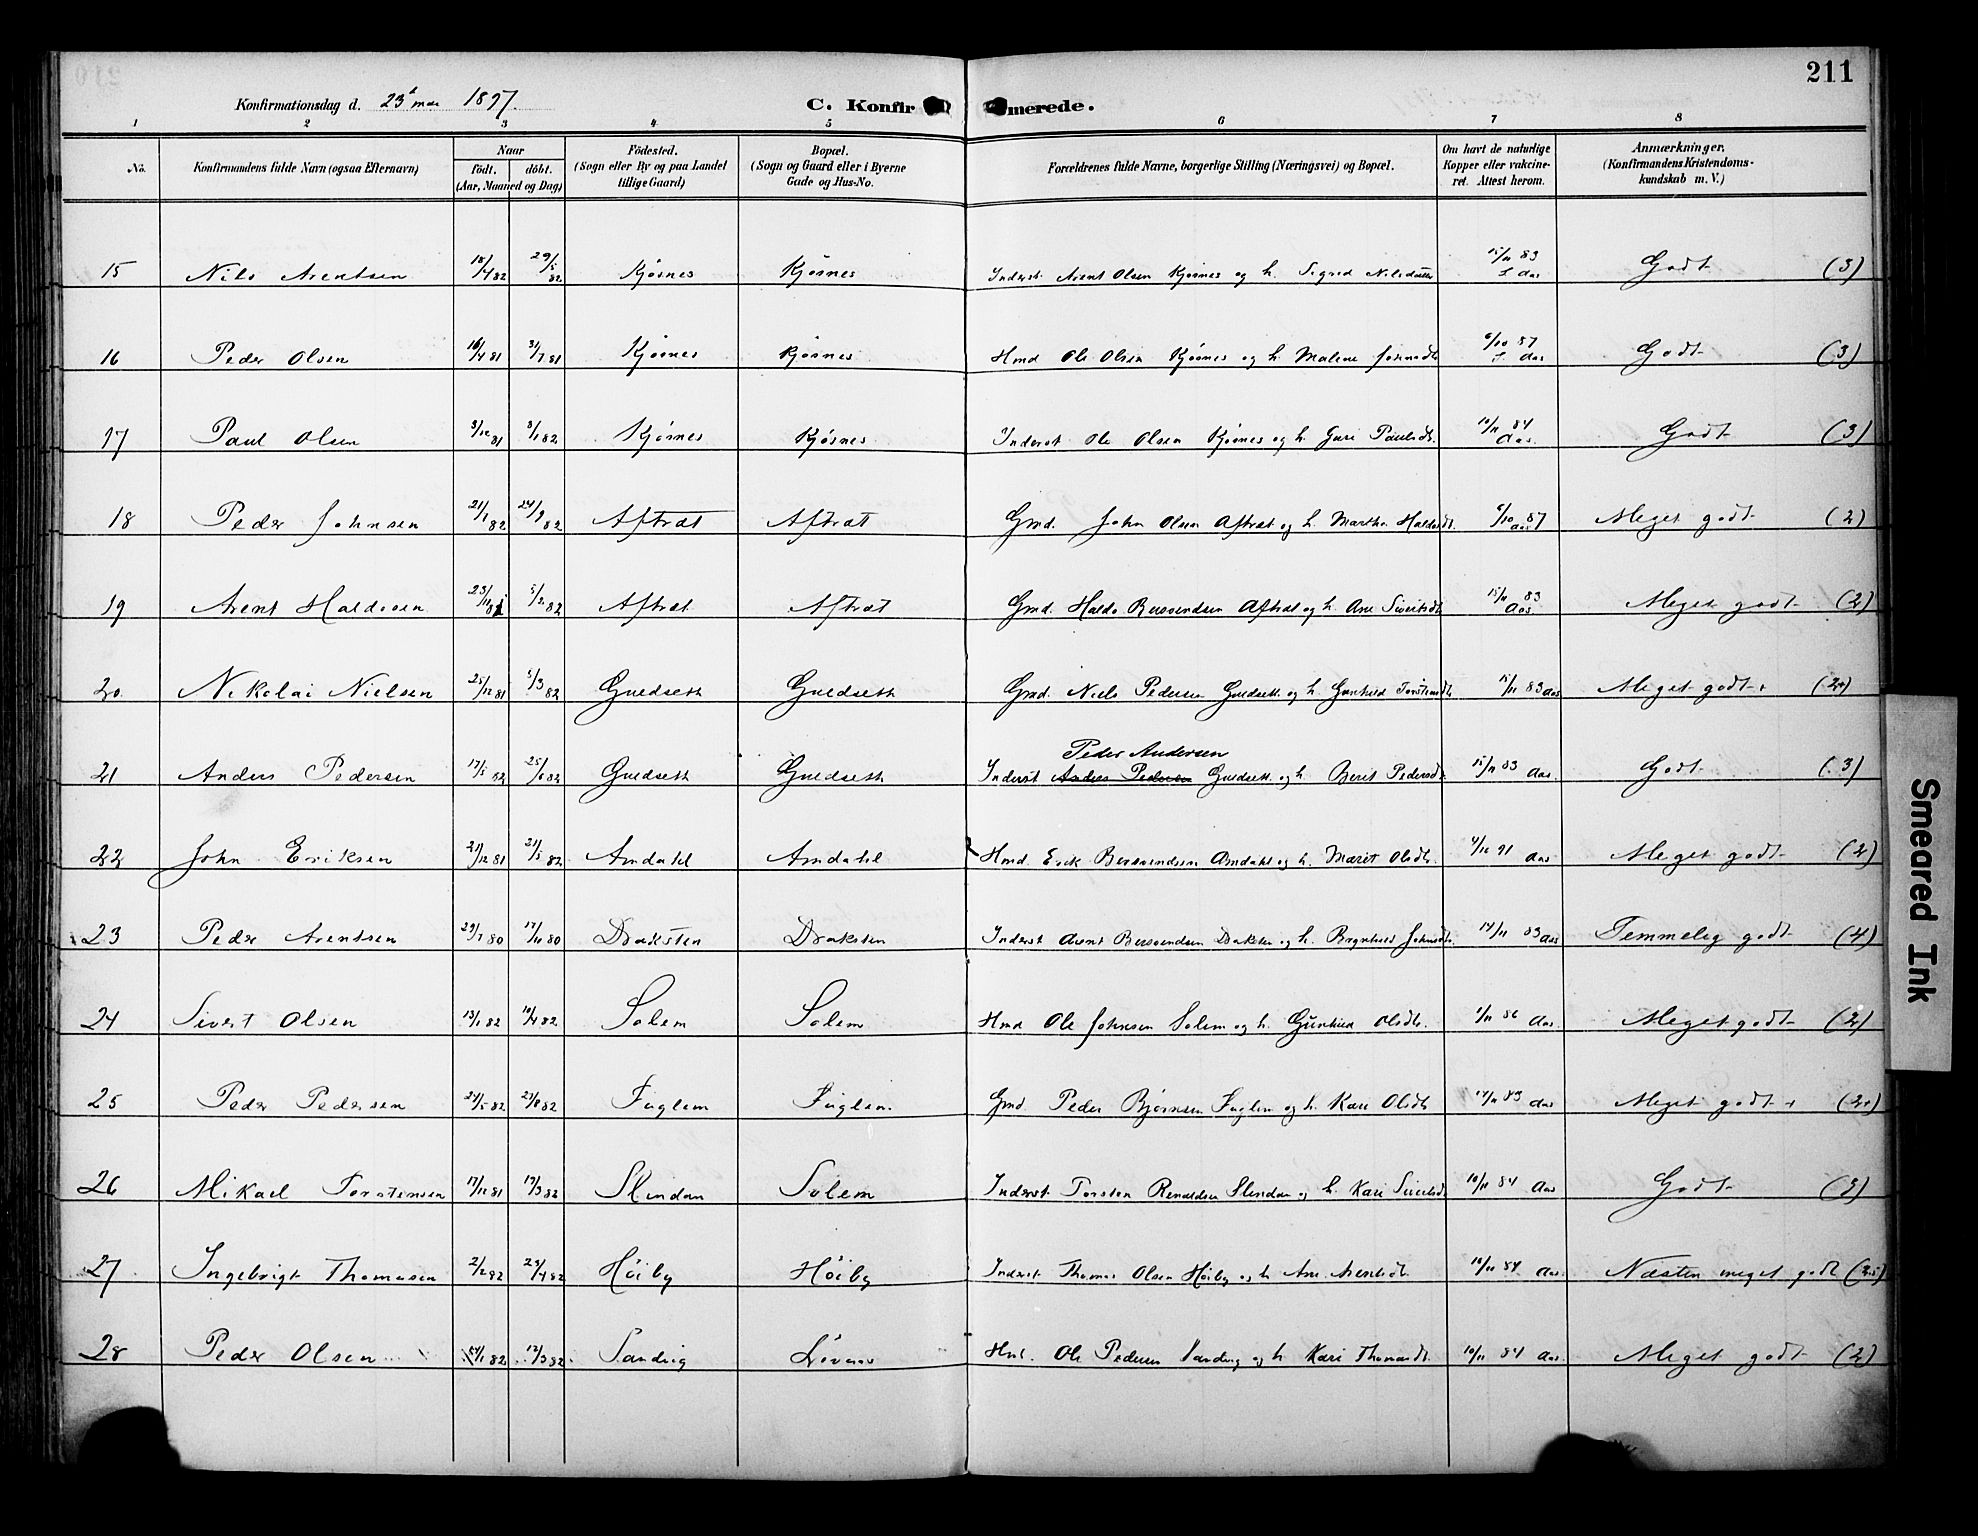 211
Konfirmationsdag d. 23de mai 1897.
C. Konfir merede.
1 2 3 4 5 6 7 8
No. Konfirmandens fulde Navn (ogsaa Efternavn) Naar født. døbt. (Aar, Maaned og Dag) Fødested. (Sogn eller By og paa Landet tillige Gaard) Bopæl. (Sogn og Gaard eller i Byerne Gade og Hus-No. Forældrenes fulde Navne, borgerlige Stilling (Næringsvei) og Bopæl. Om havt de naturlige Kopper eller vakcineret. Attest herom. Anmærkninger. (Konfirmandens Kristendomskundskab m. V.)
15 Nils Arentsen 18/4 82 29/5 82 Kjøsnes Kjøsnes Inderst Arent Olsen Kjøsnes og h. Sigrid Nilsdatter 15/11 83 Godt (3)
16 Peder Olsen 16/4 81 31/7 81 Kjøsnes Kjøsnes Hmd Ole Olsen Kjøsnes og h. Malene 6/10 87 Godt (3)
17 Paul Olsen 3/12 81 8/1 82 Kjøsnes Kjøsnes Inderst Ole Olsen Kjøsnes og h. Guri Paulsdt. 10/11 84 Aas. Godt (3)
18 Peder Johnsen 21/7 82 24/9 82 Aftræt Aftræt Gmd. John Olsen Aftræt og h. Martha Haldosdt. 6/10 87 Aas Meget godt (2)
19 Arent Haldosen 23/11 81 5/2 82 Aftræt Aftræt Gmd. Haldo Bersvendsen Aftræt og h. Ane Sivertsdt 15/11 83 Aas Meget godt (2)
20 Nikolai Nielsen 25/12 81 5/3 82 Guldseth Guldseth Gmd. Niels Pedersen Guldseth og h. Gunhild 15/11 83 Aas Meget godt+ (2+)
Peder Andersen
21 Anders Pedersen 17/5 82 25/6 82 Guldseth Guldseth Inderst Anders Pedersen Guldseth og h. Berit Pedersdt. 15/11 83 Aas. Godt (3)
22 John Eriksen 27/12 81 21/5 82 Amdahl Amdahl Hmd. Erik Bersvendsen Amdahl og h. Marit Olsdt. 4/10 91 Aas Meget godt (2)
23 Peder Arentsen 29/7 80 17/10 80 Draksten Draksten Inderst Arent Bersvendsen Draksten og h. Brynhild Johnsdt. 14/11 83 Aas Temmelig godt (4)
24 Sivert Olsen 13/1 82 10/4 82 Solem Solem Hmd Ole Johnsen Solem og h. Gunhild Olsdt. 1/11 86 Aas Meget godt (2)
25 Peder Pedersen 24/5 82 27/8 82 Fuglem Fuglem Gmd Peder Bjørnsen Fuglem og h. Kari Olsdt. 14/11 83 Aas Meget godt + (2+)
26 Mikael Torstensen 17/12 81 19/3 82 Slindan Solem Inderst Torsten Renaldsen Slindan og h. Kari Sivertsdt 10/11 84 Aas Godt (3)
27 Ingebrigt Thomasen 2/2 82 29/4 82 Høiby Høiby Inderst Thomas Olsen Høiby og h Ane Arentsdt. 10/11 84 Aas. Næsten meget godt (2.5)
28 Peder Olsen 82 12/3 82 Sandvig Løvaas Hmd. Ole Pedersen Sandvig og h Kari Thomasdt. 10/11 84 Aas. Meget godt (2)
Smeared Ink